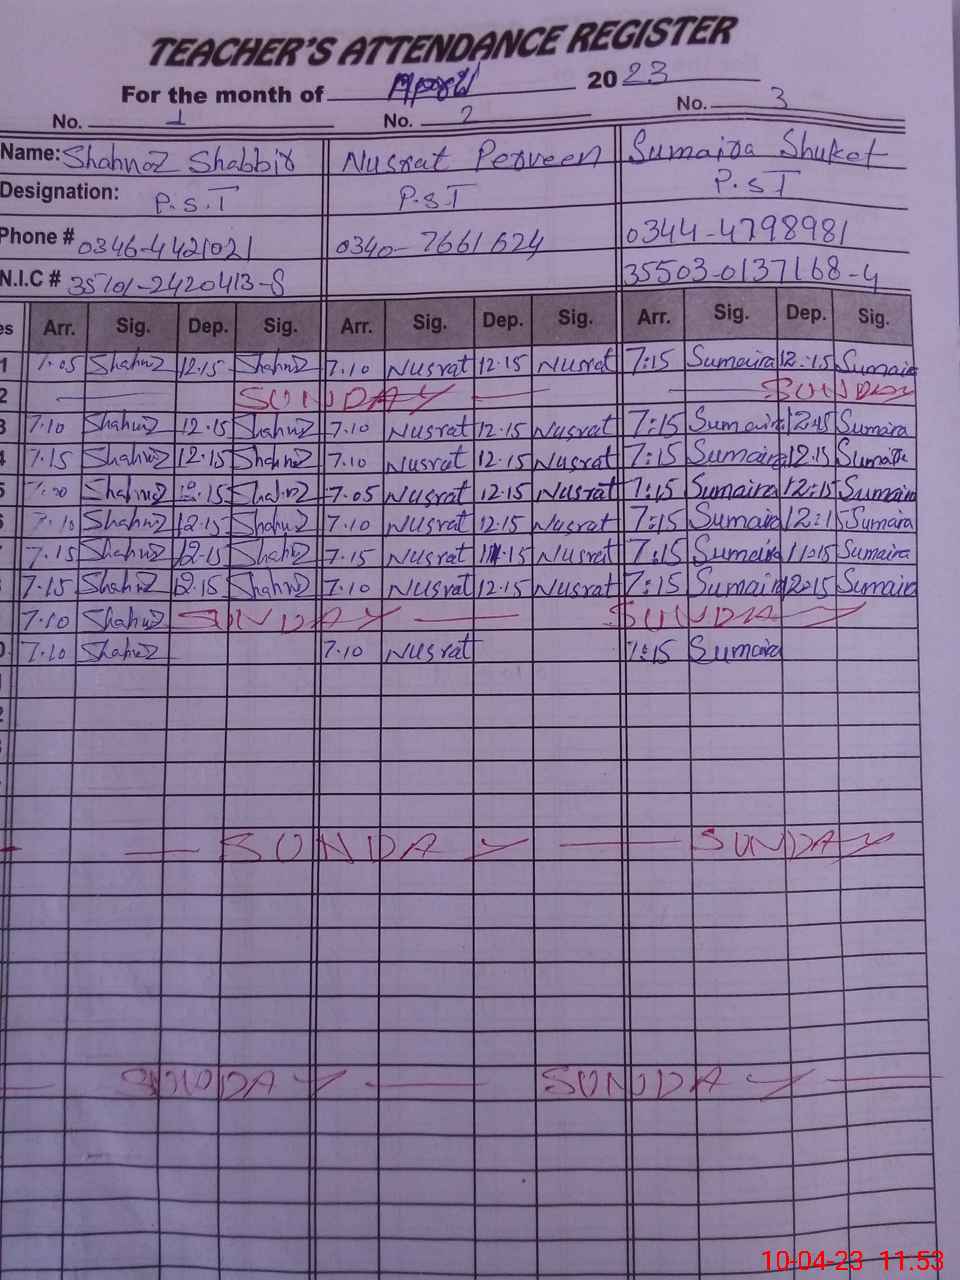 TEACHER'S ATTENDANCE REGISTER
For the month of April 2023
No. 1 No. 2 No. 3
Name: Shahnaz Shabbir Nusrat Perveen Sumaira Shuket
Designation: P.S.T P.S.T P.S.T
Phone # 0346-4421021 0340-7661624 0344-4798981
N.I.C # 35101-2420413-8 35503-0137168-4
es Arr. Sig. Dep. Sig. Arr. Sig. Dep. Sig. Arr. Sig. Dep. Sig.
1 7.05 Shahnaz 12.15 Shahnaz 7.10 Nusrat 12.15 Nusrat 7:15 Sumaira 12:15 Sumaira
2 SUNDAY SUNDAY
3 7.10 Shahnaz 12.15 Shahnaz 7.10 Nusrat 12.15 Nusrat 7:15 Sumaira 12:15 Sumaira
4 7.15 Shahnaz 12.15 Shahnaz 7.10 Nusrat 12.15 Nusrat 7:15 Sumaira 12.15 Sumaira
5 Shahnaz 12.15 Shahnaz 7.05 Nusrat 12.15 Nusrat 7:15 Sumaira 12:15 Sumaira
6 7.10 Shahnaz 12.15 Shahnaz 7.10 Nusrat 12.15 Nusrat 7:15 Sumaira 12:15 Sumaira
7.15 Shahnaz 12.15 Shahnaz 7.15 Nusrat 11.15 Nusrat 7:15 Sumaira 11:15 Sumaira
7.15 Shahnaz 12.15 Shahnaz 7.10 Nusrat 12.15 Nusrat 7:15 Sumaira 12:15 Sumaira
7.10 Shahnaz SUNDAY SUNDAY
0 7.10 Shahnaz 7.10 Nusrat 7:15 Sumaira
1
2
3
SUNDAY SUNDAY
SUNDAY SUNDAY
10-04-23 11.53